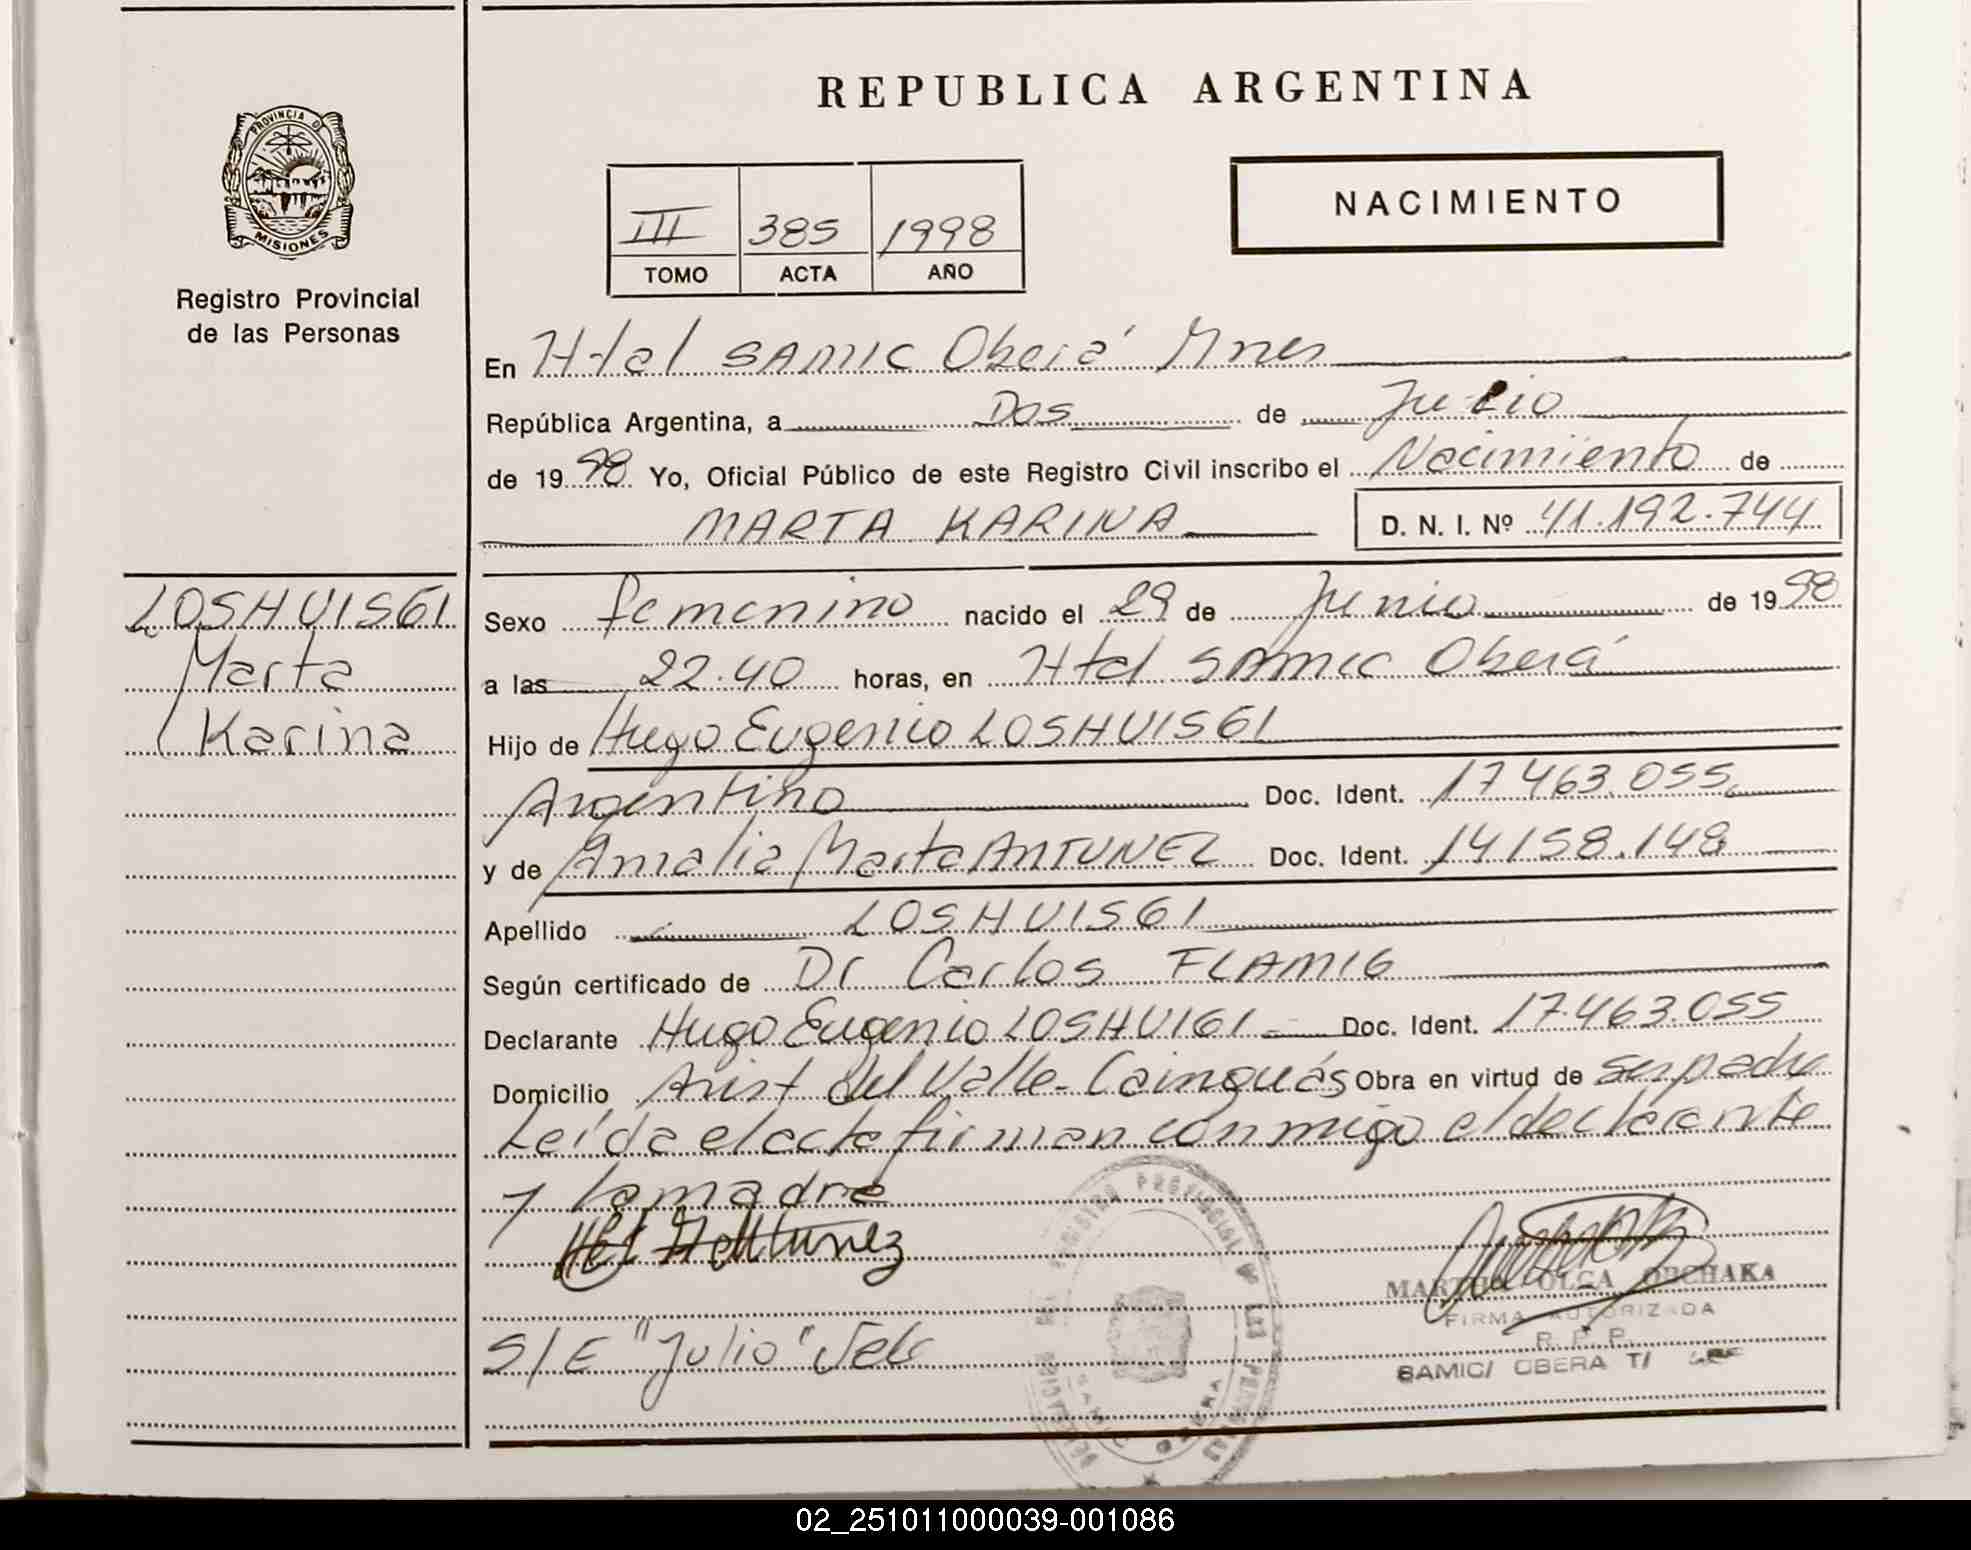 REPUBLICA ARGENTINA
PROVINCIA D
MISIONES
Registro Provincial
de las Personas
NACIMIENTO
III 385 1998
TOMO ACTA AÑO
En Htal SAMIC Oberá Mnes
República Argentina, a Dos de Julio
de 1998 Yo, Oficial Público de este Registro Civil inscribo el Nacimiento de
MARTA KARINA D. N. I. Nº 41.192.744
LOSHUISGI
Marta
Karina
Sexo femenino nacido el 29 de Junio de 1998
a las 22.40 horas, en Htal SAMIC Oberá
Hijo de Hugo Eugenio LOSHUISGI
Argentino Doc. Ident. 17463.055
y de Amalia Marta ANTUNEZ Doc. Ident. 14158.148
Apellido LOSHUISGI
Según certificado de Dr Carlos FLAMIG
Declarante Hugo Eugenio LOSHUIGI Doc. Ident. 17.463.055
Domicilio Arist del Valle - Cainguás Obra en virtud de ser padre
Leída el acta firman conmigo el declarante
y la madre
MARTHA OLGA OBCHAKA
FIRMA AUTORIZADA
R. P. P.
SAMIC/ OBERA
S/E "Julio" Vale
02_251011000039-001086